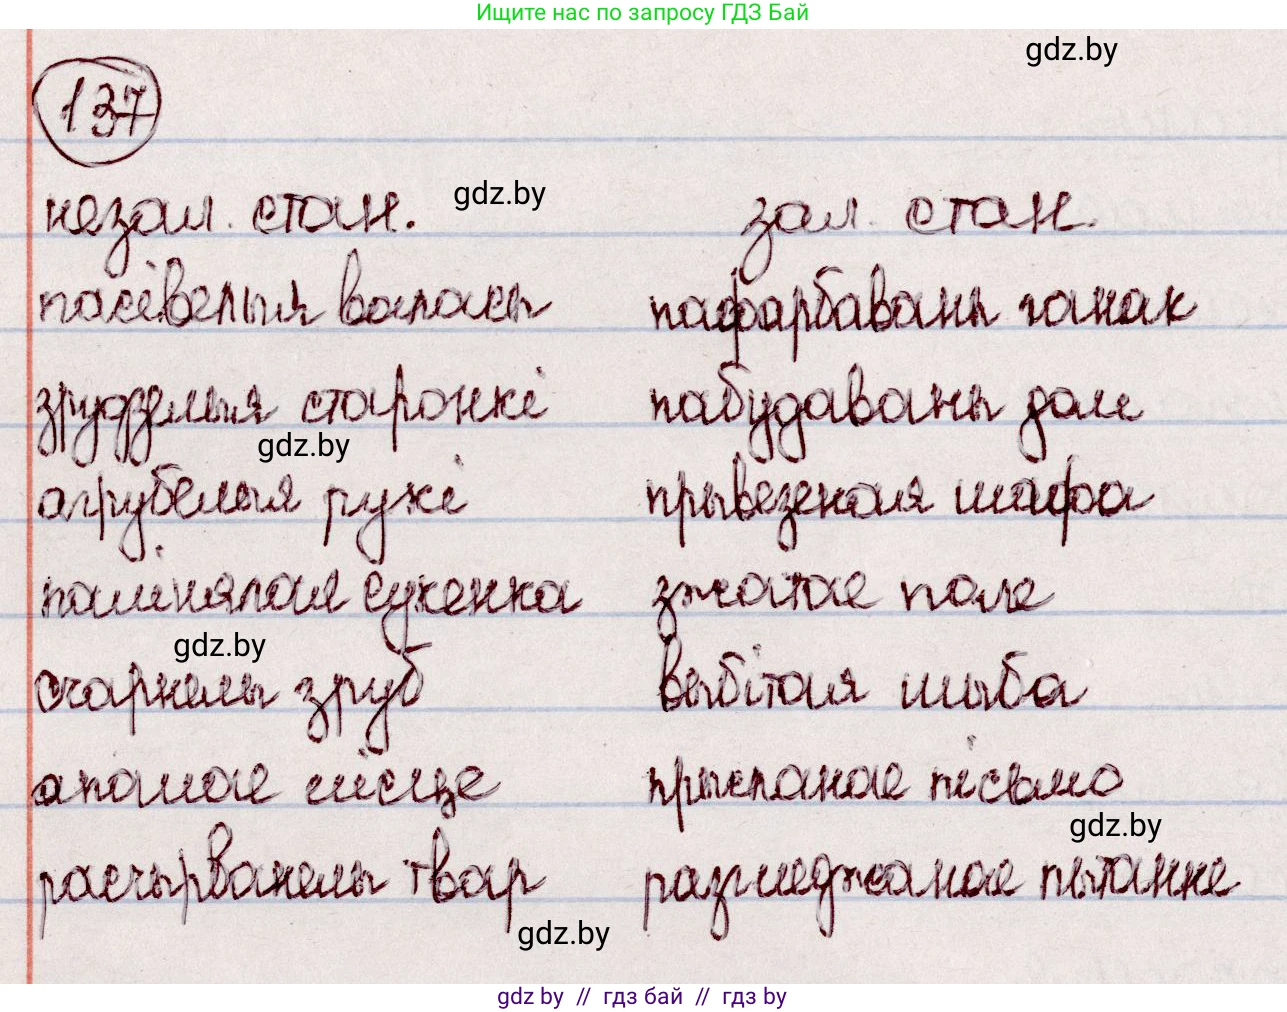 Ищите нас по запросу ГДЗ Бай
gdz.by
137
gdz.by
незал. стан. зал. стан.
пасівелыя валасы пафарбаваны ганак
зрудзелыя старонкі пабудаваны дом
gdz.by
агрубелыя рукі прывезеная шафа
палінялая сукенка зжатае поле
gdz.by
счарнелы зруб выбітая шыба
апалае лісце прысланае пісьмо
gdz.by
расчырванелы твар разгледжанае пытанне
gdz.by
gdz by // гдз бай // гдз by